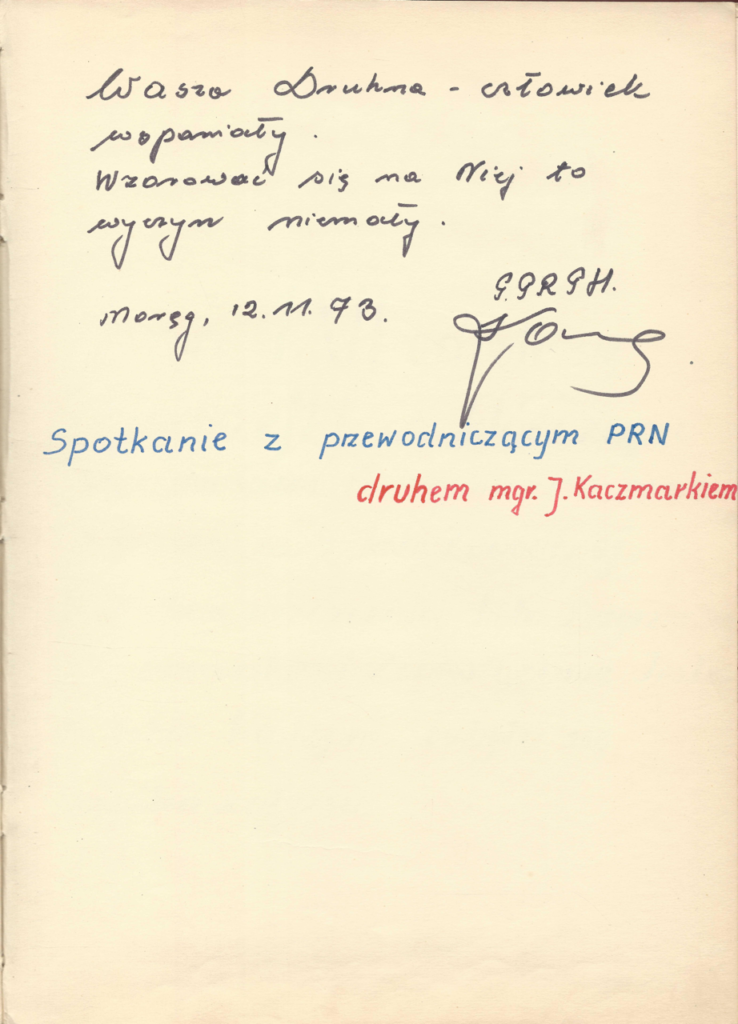 Wasza Druhna - człowiek
wspaniały.
Wzorować się na Niej to
wyczyn niemały.
Morąg, 12.11.73.
Spotkanie z przewodniczącym PRN
druhem mgr. J. Kaczmarkiem